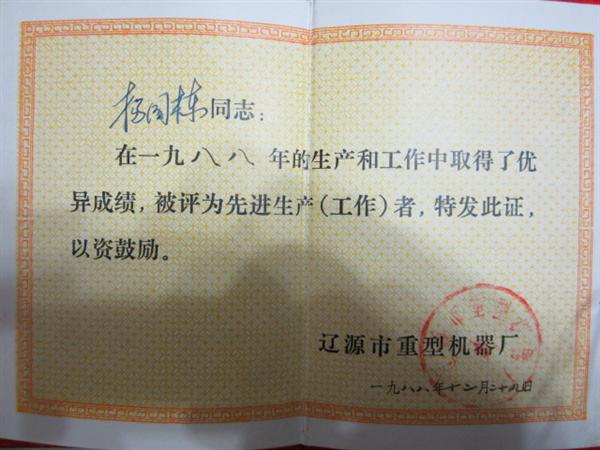 杨国栋同志：
在一九八八年的生产和工作中取得了优
异成绩，被评为先进生产（工作）者，特发此证，
以资鼓励。
辽源市重型机器厂
一九八八年十二月二十九日